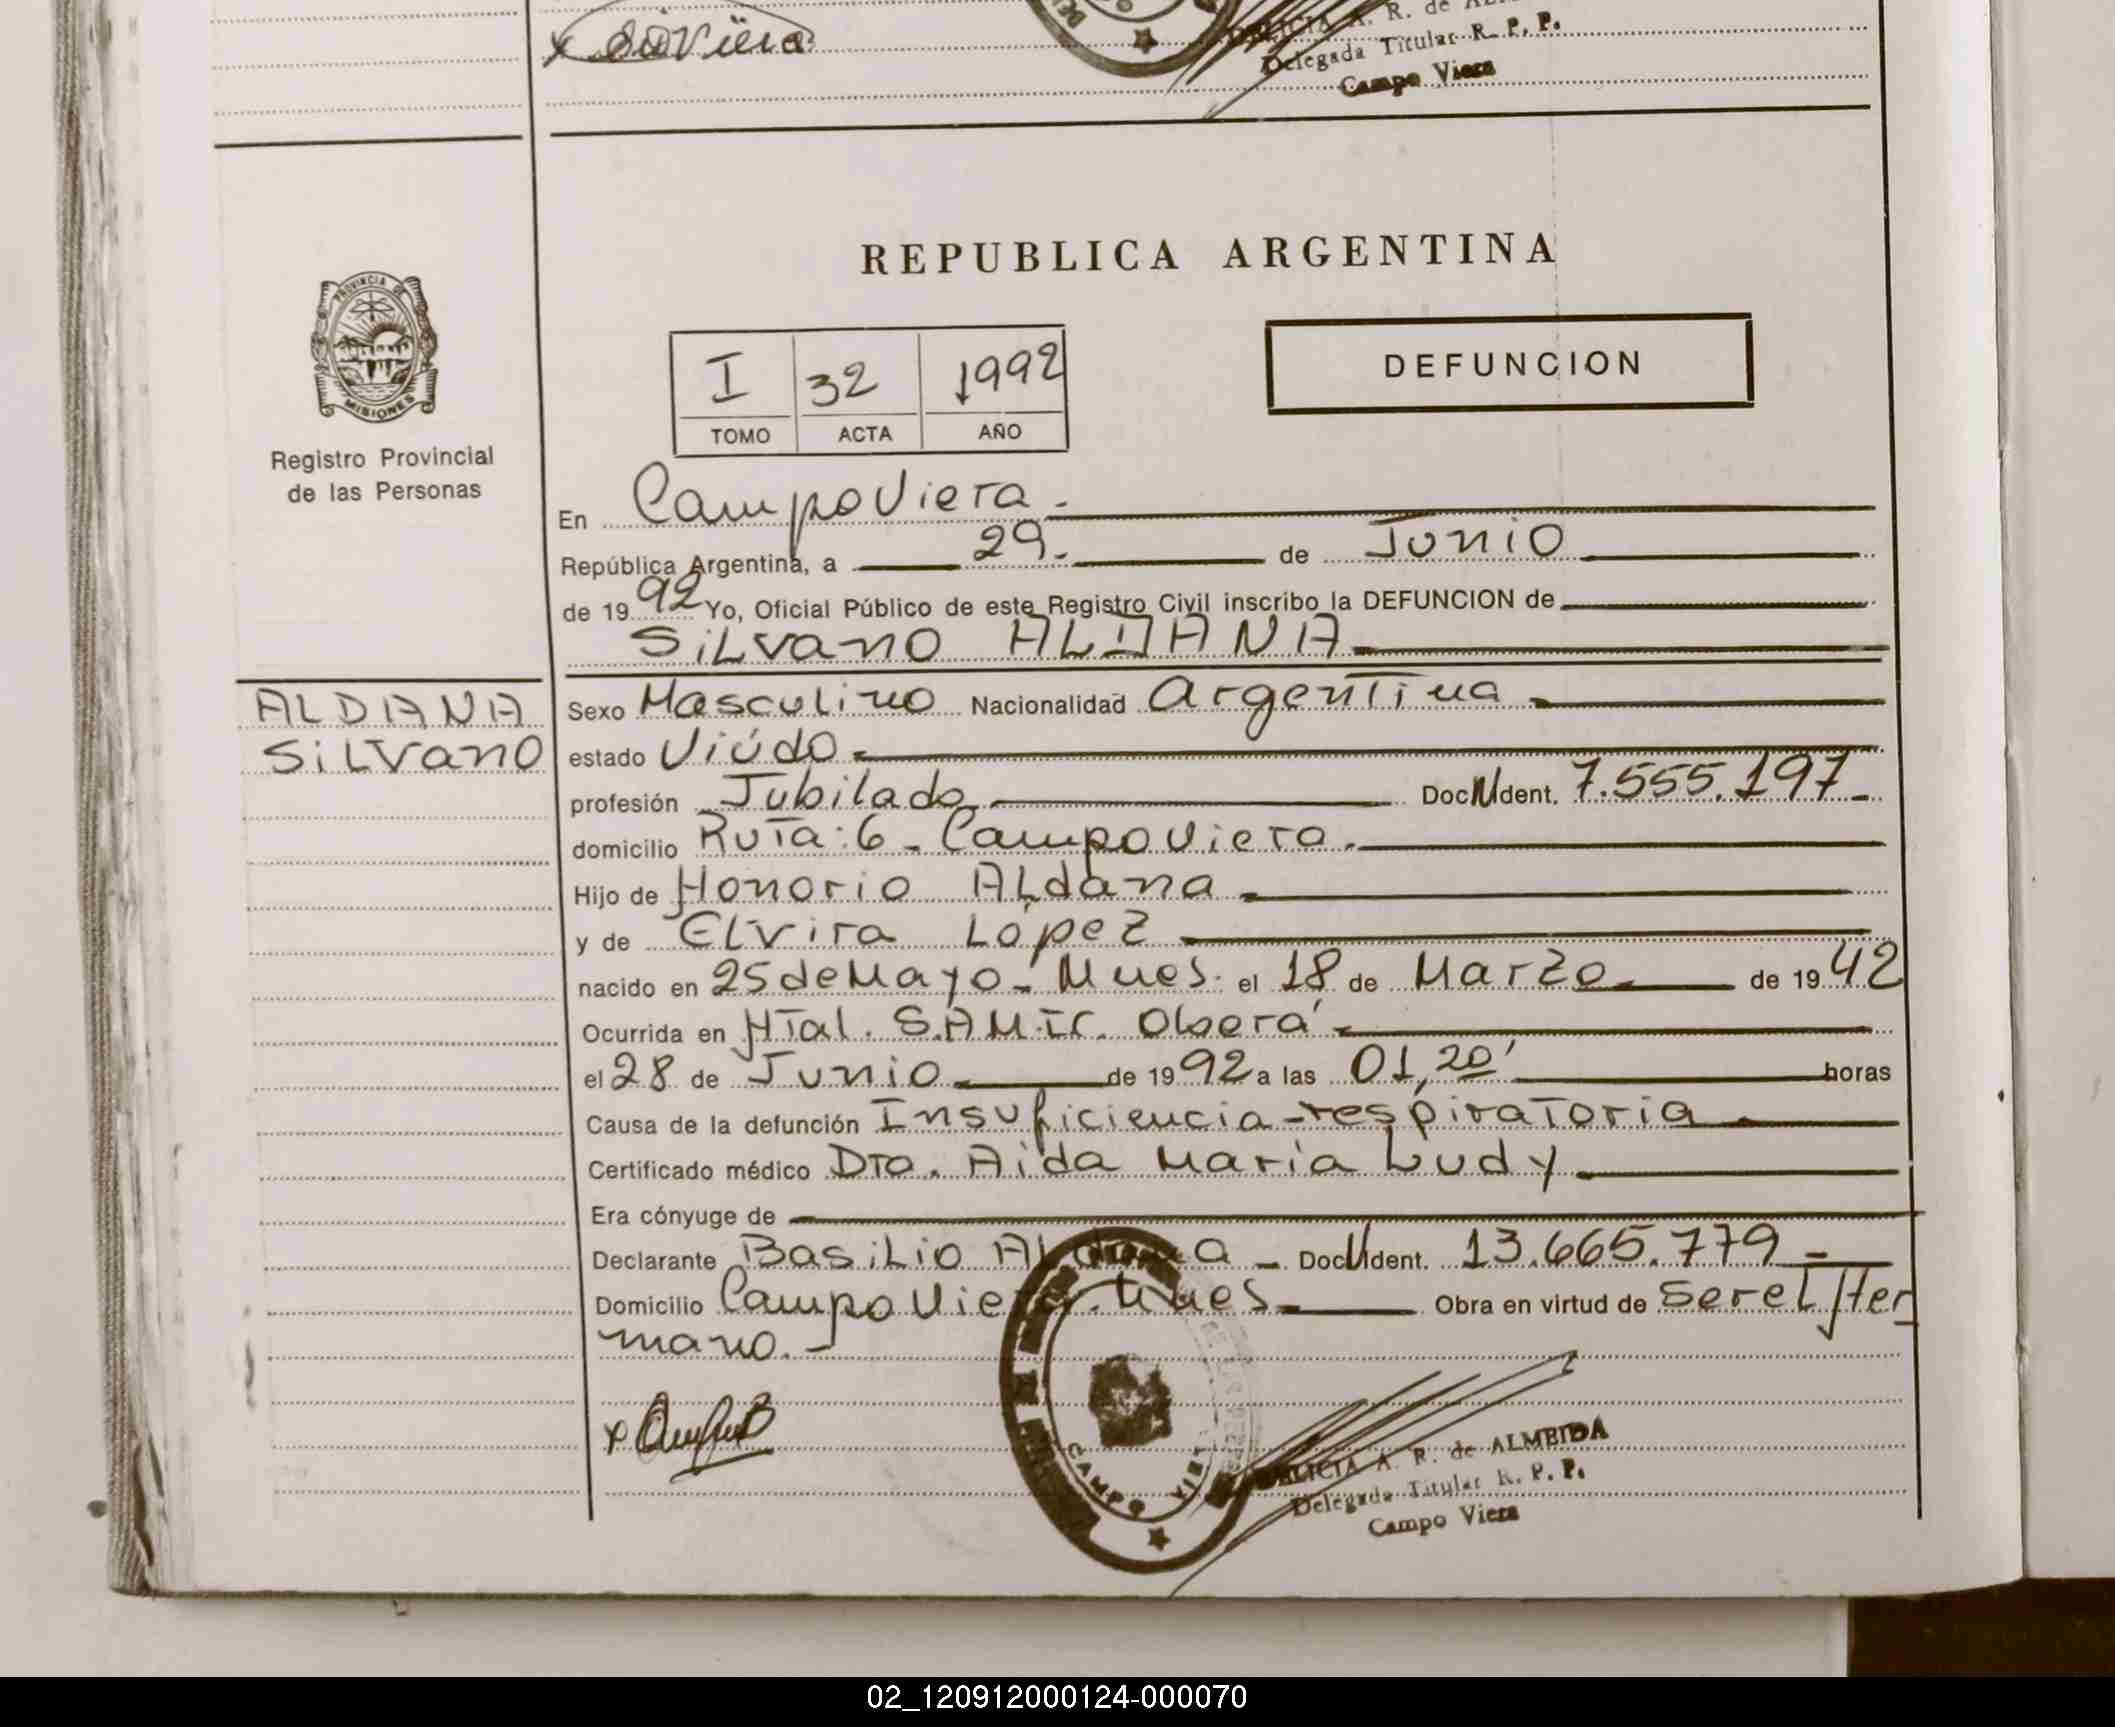 x
A. R. de
Delegada Titular R. P. P.
Campo Viera
PROVINCIA DE
MISIONES
Registro Provincial
de las Personas
REPUBLICA ARGENTINA
I 32 1992
TOMO ACTA AÑO
DEFUNCION
En Campo Viera.-
República Argentina, a 29.- de Junio
de 1992 Yo, Oficial Público de este Registro Civil inscribo la DEFUNCION de
SILVANO ALDANA
ALDANA
SILVANO
Sexo Masculino Nacionalidad Argentina
estado Viúdo
profesión Jubilado Doc N Ident. 7.555.197-
domicilio Ruta: 6 - Campo Viera.
Hijo de Honorio ALdana
y de Elvira López
nacido en 25 de Mayo - Mnes. el 18 de Marzo de 1942
Ocurrida en Htal. S.A.M.I.C. Oberá
el 28 de Junio de 1992 a las 01,20' horas
Causa de la defunción Insuficiencia respiratoria
Certificado médico Dra. Aida María Ludy
Era cónyuge de
Declarante Basilio Aldana - Doc Ident. 13.665.779-
Domicilio Campo Viera. Mnes Obra en virtud de ser el Her
mano.-
x
CAMPO VIERA
DELICIA A. R. de ALMEIDA
Delegada Titular R. P. P.
Campo Viera
02_120912000124-000070